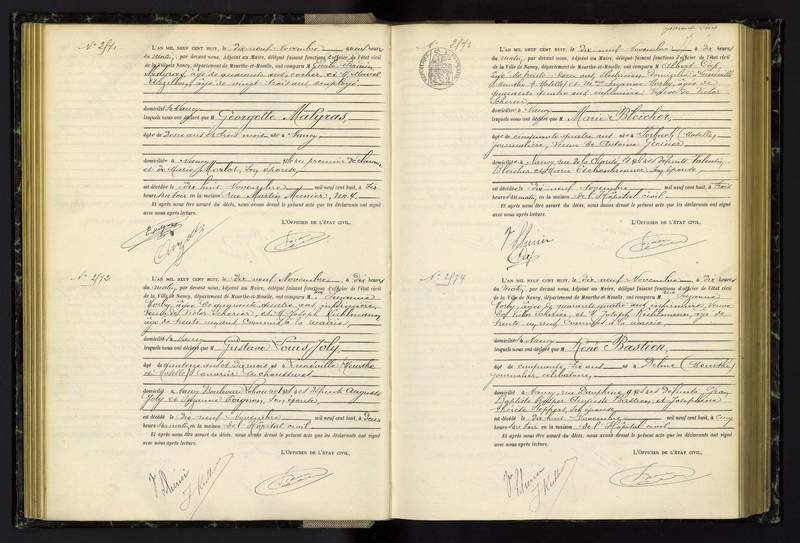 N° 2571
L'AN MIL NEUF CENT HUIT, le dix neuf Novembre à dix heures
du matin, par devant nous, Adjoint au Maire, délégué faisant fonctions d'officier de l'état civil
de la Ville de Nancy, département de Meurthe-et-Moselle, ont comparu M
Malgras, âgé de quarante ans, cocher, et M. Marcel
âgé de vingt trois ans employé,
domiciliés à Nancy
lesquels nous ont déclaré que M Georgette Malgras,
âgée de et né à Nancy
domiciliée à Nancy
et de Marie Morlot, son épouse,
est décédée le dix huit Novembre mil neuf cent huit, à dix
heures du soir, en la maison rue Martin Meunier, no 4.
Et après nous être assuré du décès, nous avons dressé le présent acte que les déclarants ont signé
avec nous après lecture.
L'OFFICIER DE L'ÉTAT CIVIL,
N° 2572.
L'AN MIL NEUF CENT HUIT, le dix neuf Novembre, à dix heures
du matin, par devant nous, Adjoint au Maire, délégué faisant fonctions d'officier de l'état civil
de la Ville de Nancy, département de Meurthe-et-Moselle, ont comparu M Suzanne
âgée de quarante quatre ans infirmière
veuve de Victor Scherier, et M. Joseph Kuhlmann,
âgé de trente neuf ans commis à la mairie,
domiciliés à Nancy
lesquels nous ont déclaré que M Gustave Louis Joly,
âgé de quatorze ans et dix mois et né à Lunéville Meurthe
et Moselle
domicilié à Nancy Boulevard Lobau fils des défunts Auguste
Joly et Suzanne son épouse,
est décédé le dix neuf Novembre mil neuf cent huit, à deux
heures du matin, en la maison de l'Hôpital civil
Et après nous être assuré du décès, nous avons dressé le présent acte que les déclarants ont signé
avec nous après lecture.
L'OFFICIER DE L'ÉTAT CIVIL,
V Scherier
J Kuhlmann
N° 2573
L'AN MIL NEUF CENT HUIT, le dix neuf Novembre à dix heures
du matin, par devant nous, Adjoint au Maire, délégué faisant fonctions d'officier de l'état civil
de la Ville de Nancy, département de Meurthe-et-Moselle, ont comparu M
âgé de trente ans électricien domicilié à Lunéville
(Meurthe & Moselle) et Suzanne âgée de
quarante quatre ans infirmière veuve de Victor
Scherier
domicilié à Nancy
lesquels nous ont déclaré que M Marie Bleicher,
âgée de cinquante quatre ans et né à Forbach (Moselle)
journalière, Veuve de Antoine
domiciliée à Nancy, rue de la Charité, fille des défunts Valentin
Bleicher et Marie Eschenbrenner son épouse,
est décédée le dix neuf Novembre mil neuf cent huit, à trois
heures du matin, en la maison de l'Hôpital civil
Et après nous être assuré du décès, nous avons dressé le présent acte que les déclarants ont signé
avec nous après lecture.
L'OFFICIER DE L'ÉTAT CIVIL,
V Scherier
N° 2574
L'AN MIL NEUF CENT HUIT, le dix neuf Novembre, à dix heures
du matin, par devant nous, Adjoint au Maire, délégué faisant fonctions d'officier de l'état civil
de la Ville de Nancy, département de Meurthe-et-Moselle, ont comparu M Suzanne
âgée de quarante quatre ans infirmière Veuve
de Victor Scherier, et M. Joseph Kuhlmann, âgé de
trente neuf ans commis à la mairie
domiciliés à Nancy
lesquels nous ont déclaré que M René Bastien,
âgé de cinquante six ans et né à Delme (Meurthe)
journalier, célibataire,
domicilié à Nancy, rue Dauphine fils des défunts Jean
Baptiste Auguste Bastien, et Joséphine
Thérèse son épouse
est décédé le dix huit Novembre mil neuf cent huit, à cinq
heures du soir, en la maison de l'Hôpital civil
Et après nous être assuré du décès, nous avons dressé le présent acte que les déclarants ont signé
avec nous après lecture.
L'OFFICIER DE L'ÉTAT CIVIL,
V Scherier
J Kuhlmann